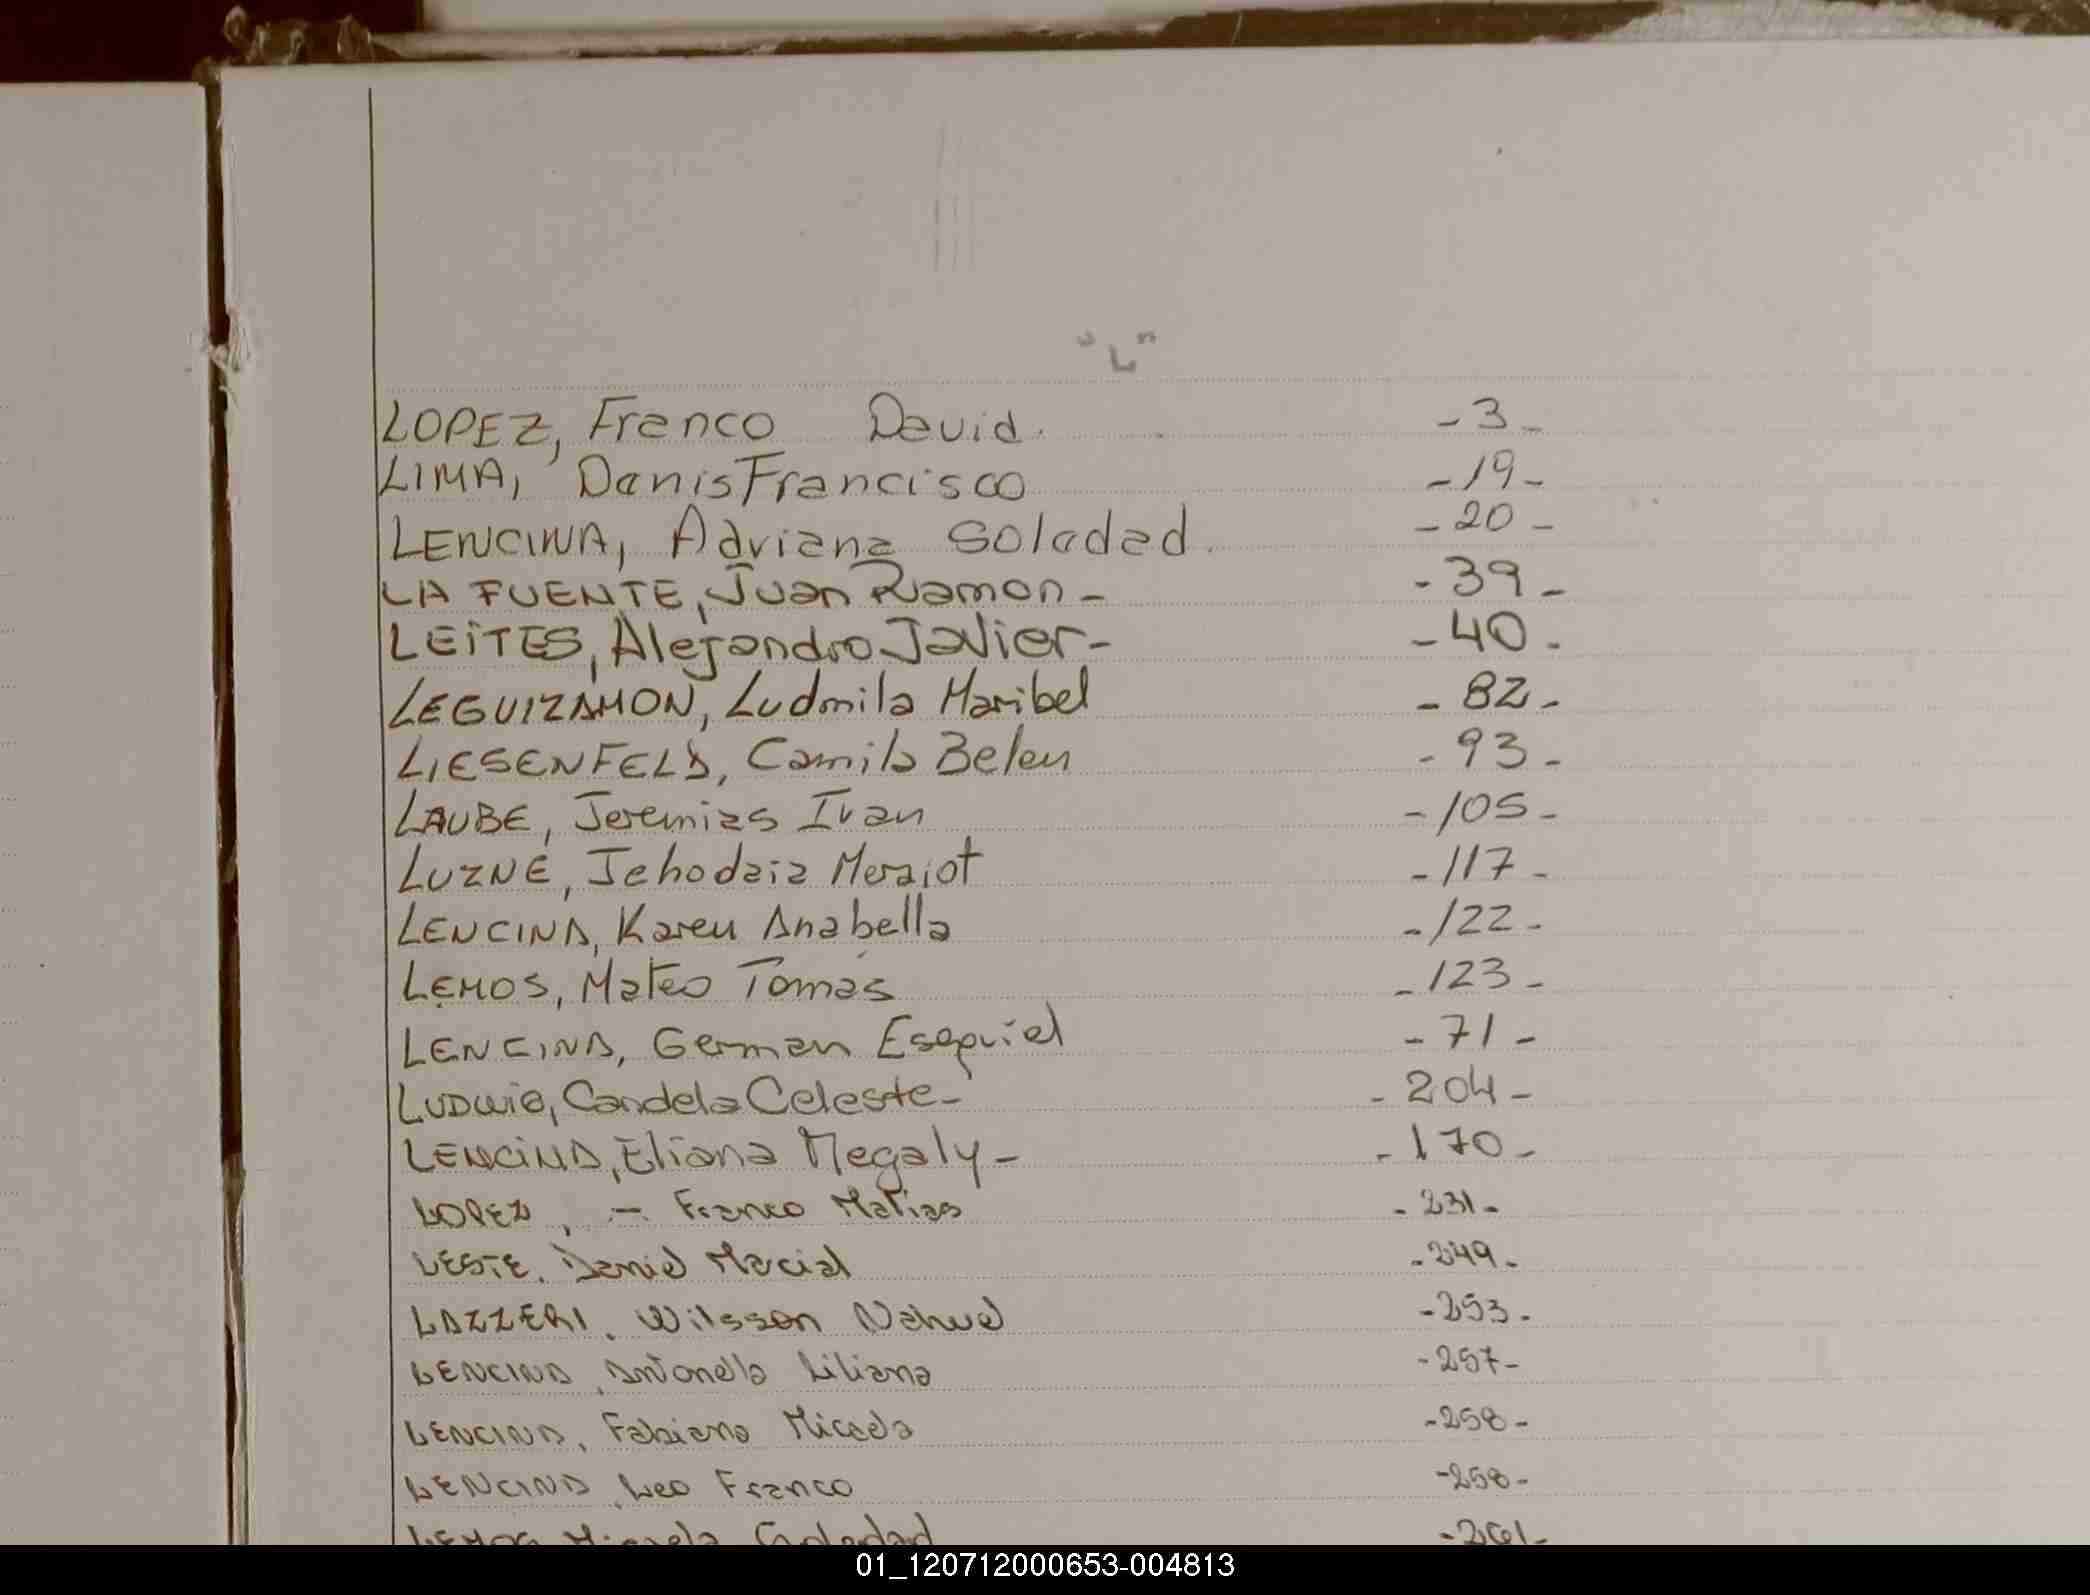 "L"
LOPEZ, Franco David. -3-
LIMA, Danis Francisco -19-
LENCINA, Adriana Soledad. -20-
LA FUENTE, Juan Ramon- -39-
LEITES, Alejandro Javier- -40-
LEGUIZAMON, Ludmila Maribel -82-
LIESENFELD, Camila Belen -93-
LAUBE, Jeremias Ivan -105-
LUZNE, Jehodaia Meraiot -117-
LENCINA, Karen Anabella -122-
LEMOS, Mateo Tomas -123-
LENCINA, German Esequiel -71-
LUDWIG, Candela Celeste- -204-
LENCINA, Eliana Megaly- -170-
LOPEZ, - Franco Matias -231-
LESTE. Daniel Macial -249-
LAZZERI. Wilsson Nahuel -253-
LENCINA, Antonella Liliana -257-
LENCINA, Fabiana Micaela -258-
LENCINA, Leo Franco -258-
LEMOS Micaela Soledad -261-
01_120712000653-004813